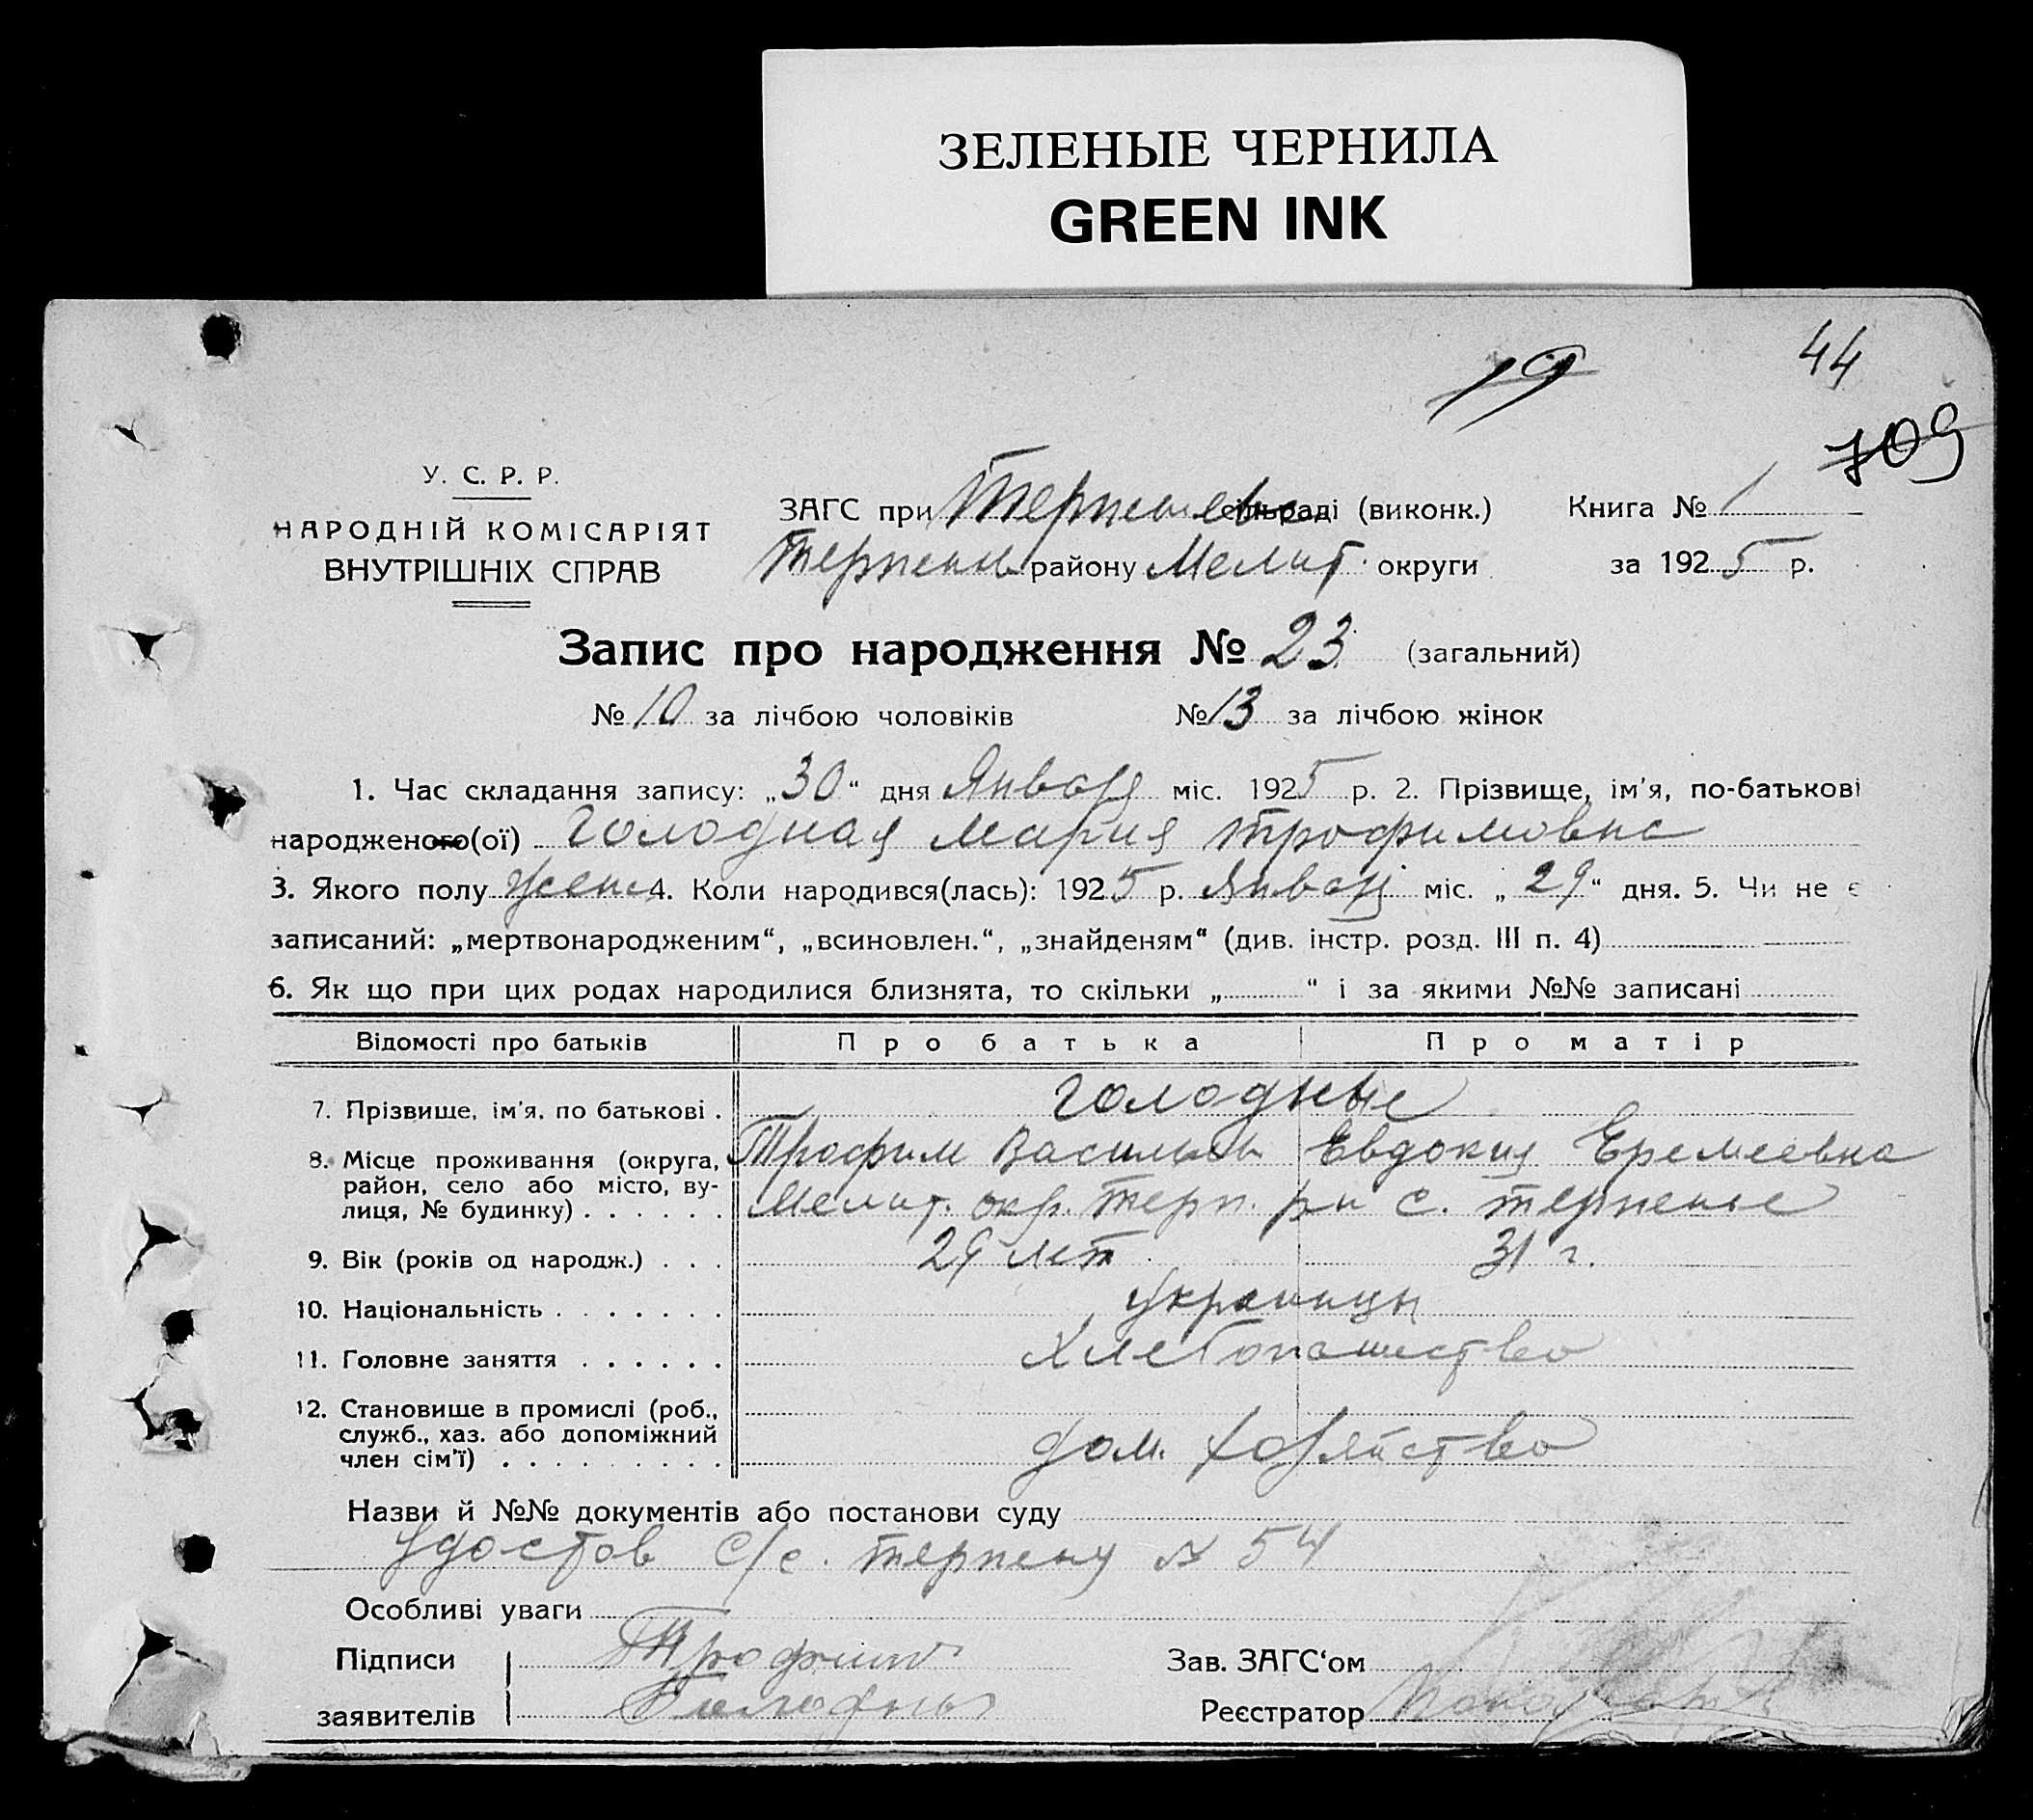 ЗЕЛЕНЫЕ ЧЕРНИЛА
GREEN INK
19
44
709
У. С. Р. Р.
НАРОДНІЙ КОМІСАРІЯТ
ВНУТРІШНІХ СПРАВ
ЗАГС при сільраді (виконк.) Книга № 1
Терпен району Мелит. округи за 1925 р.
Запис про народження № 23 (загальний)
№ 10 за лічбою чоловіків № 13 за лічбою жінок
1. Час складання запису: „30“ дня Январ міс. 1925 р. 2. Прізвище, ім'я, по-батькові
народженого(ої) Голодная Мария Трофимовна
3. Якого полу женс 4. Коли народився(лась): 1925 р. Январ міс. „29“ дня. 5. Чи не є
записаний: „мертвонародженим“, „всиновлен.“, „знайденям“ (див. інстр. розд. III п. 4)
6. Як що при цих родах народилися близнята, то скільки „ “ і за якими №№ записані
Відомості про батьків Про батька Про матір
7. Прізвище, ім'я, по батькові . Голодные
8. Місце проживання (округа, Трофим Васильев Евдокия Еремеевна
район, село або місто, ву-
лиця, № будинку) . . . . . . Мелит. окр. Терп. рн с. Терпенье
9. Вік (років од народж.) . . . 29 лет 31 г.
10. Національність . . . . . . . украинцы
11. Головне заняття . . . . . . Хлебопашество
12. Становище в промислі (роб.,
служб., хаз. або допоміжний дом. хозяйство
член сім'ї) . . . . . . . . .
Назви й №№ документів або постанови суду
Удостов с/с. Терпену № 54
Особливі уваги
Підписи Трофим Зав. ЗАГС'ом
заявителів Реєстратор